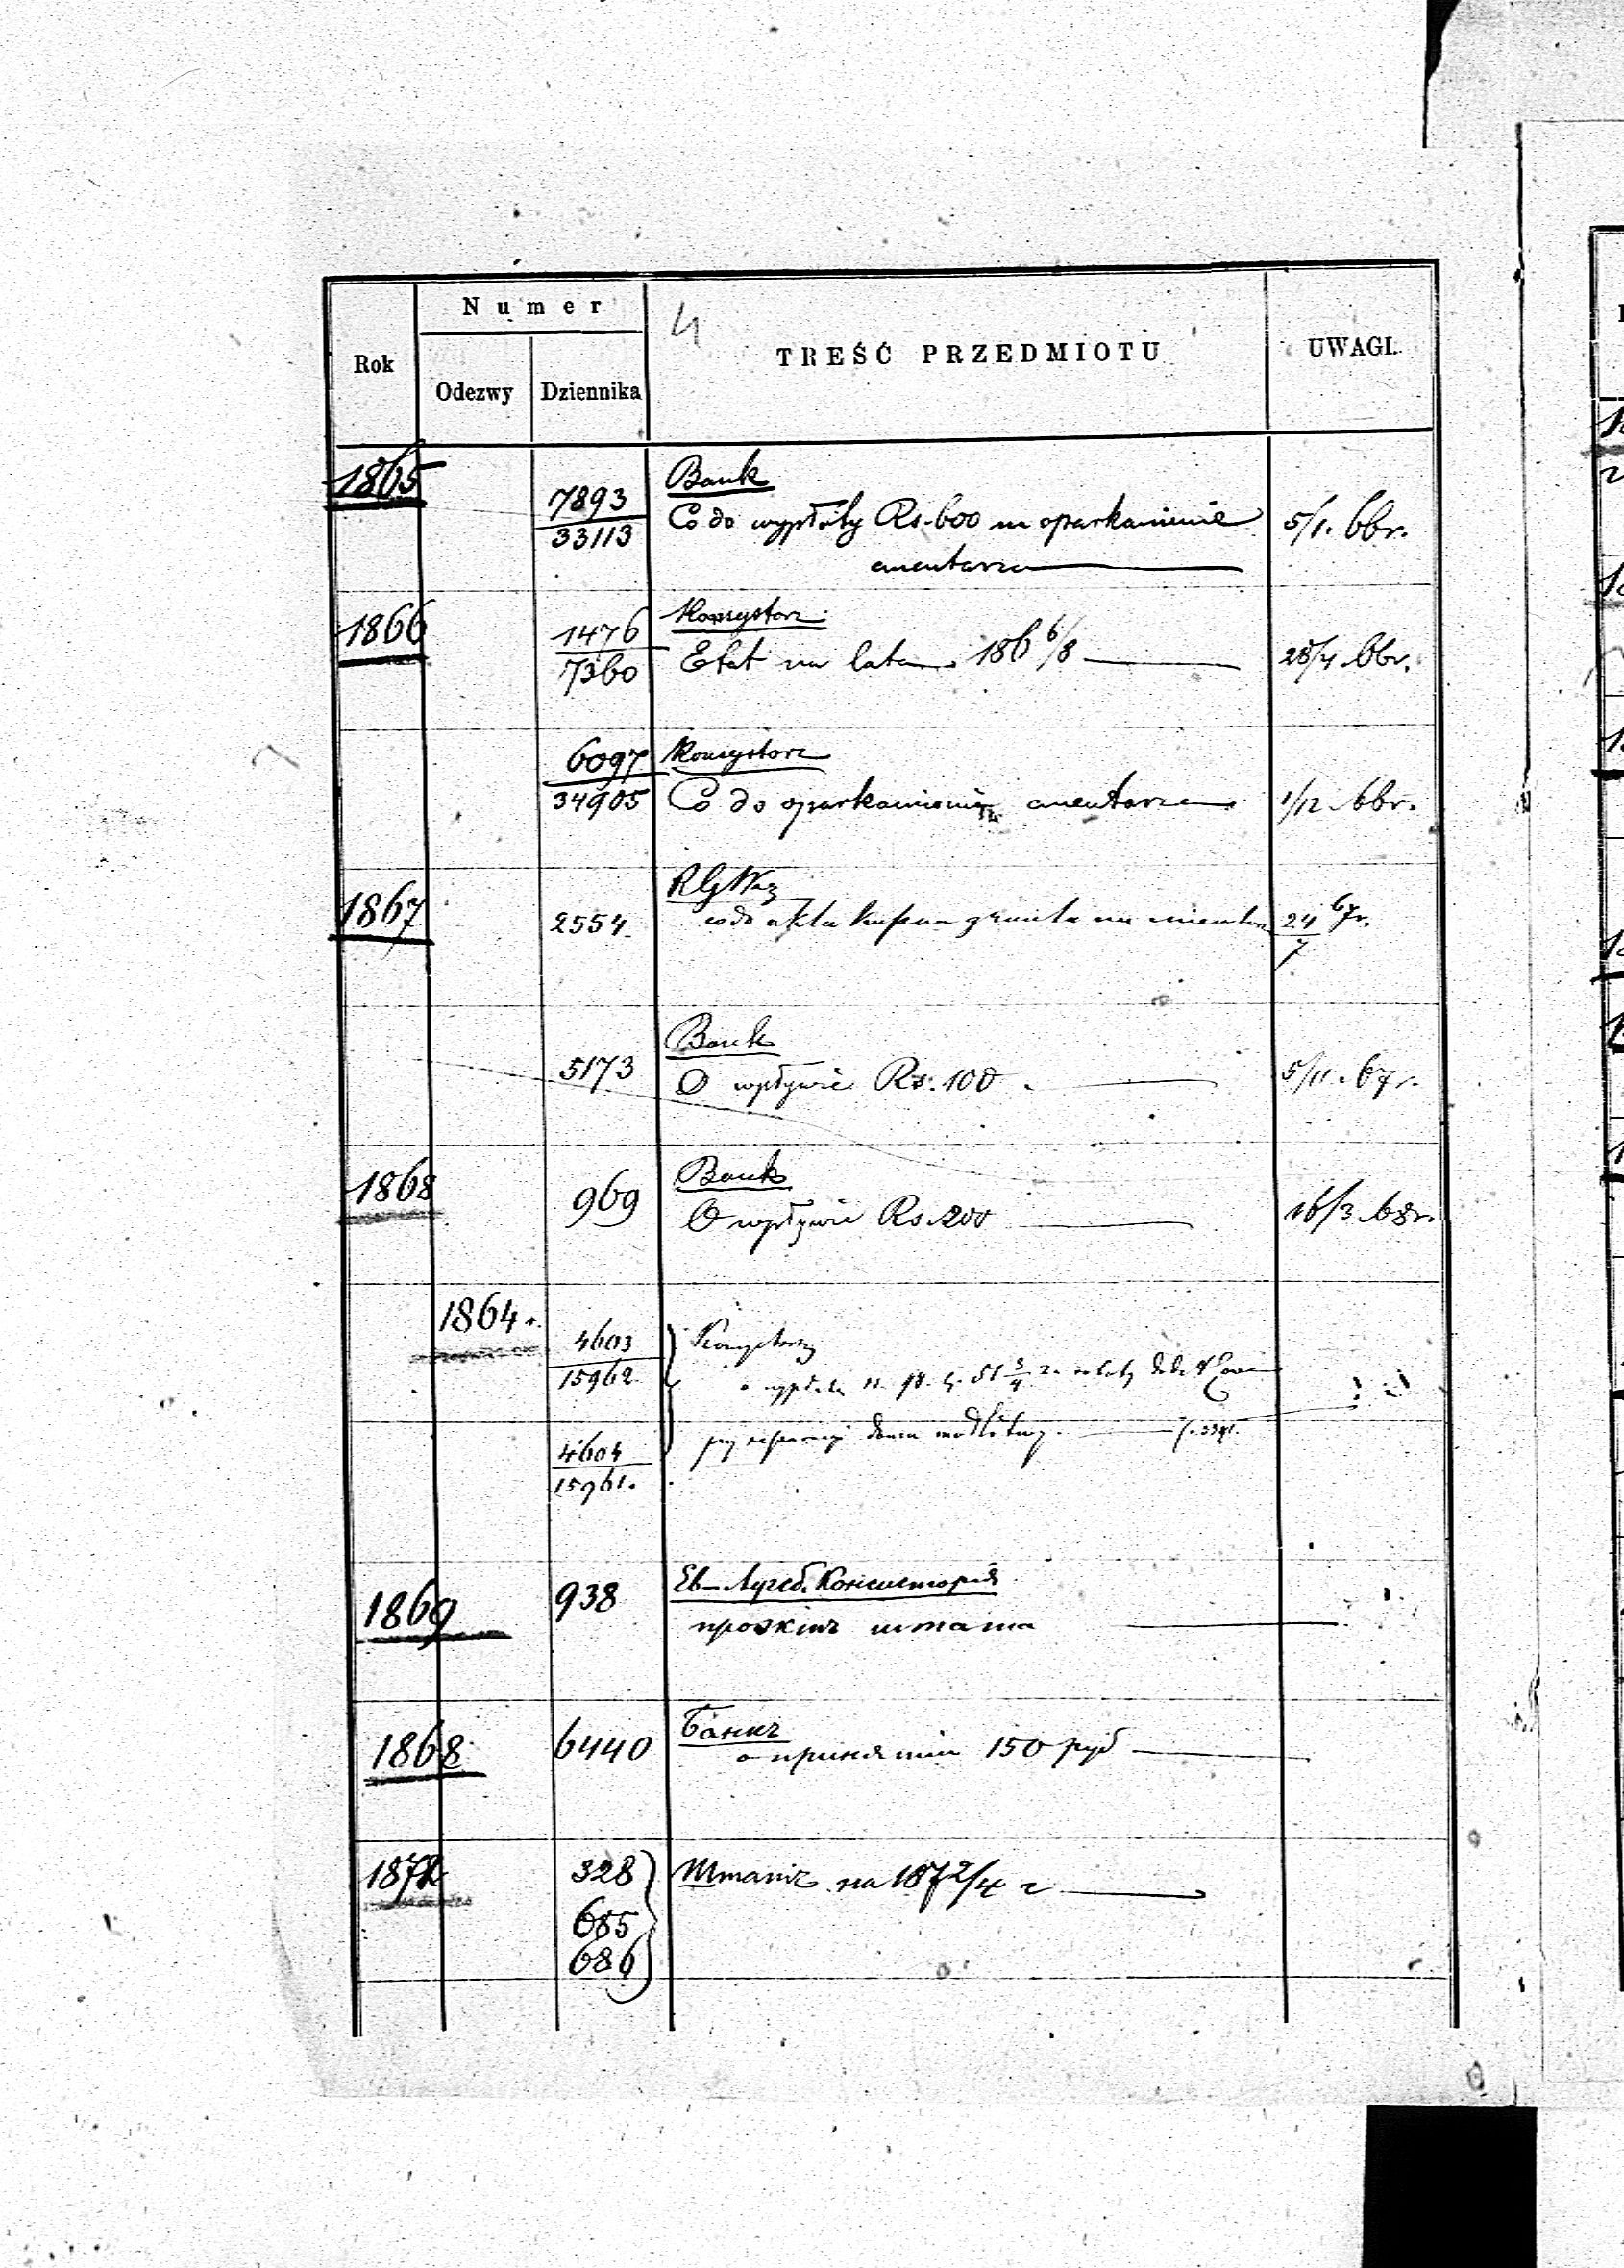 Numer
4
Rok
Odezwy
Dziennika
TREŚĆ PRZEDMIOTU
UWAGI.
1865
7893
33113
Bank
Co do wypłaty Rs. 600 na oparkanienie
cmentarza
5/1. 66r.
1866
1476
7360
Konsystorz
Etat na lata 186 6/8
28/4 66r.
6097
34905
Konsystorz
Co do oparkanienia cmentarza
1/12 66r.
1867
2554
co do aktu kupna gruntu na
24/7 67r.
5173
Bank
O wpływie Rs. 100
5/11. 67r.
1868
969
Bank
O wpływie Rs. 200
16/3 68r.
1864
4603
15962
Konsystorz
o 51 3/4 za
4604
15961.
przy reparacyi domu modlitwy.
1869
938
Ев-Аугсб. Консисторія
проэктъ штата
1868
6440
Банкъ
о принятіи 150 руб
1872
328
685
686
Штатъ на 187 2/4 г